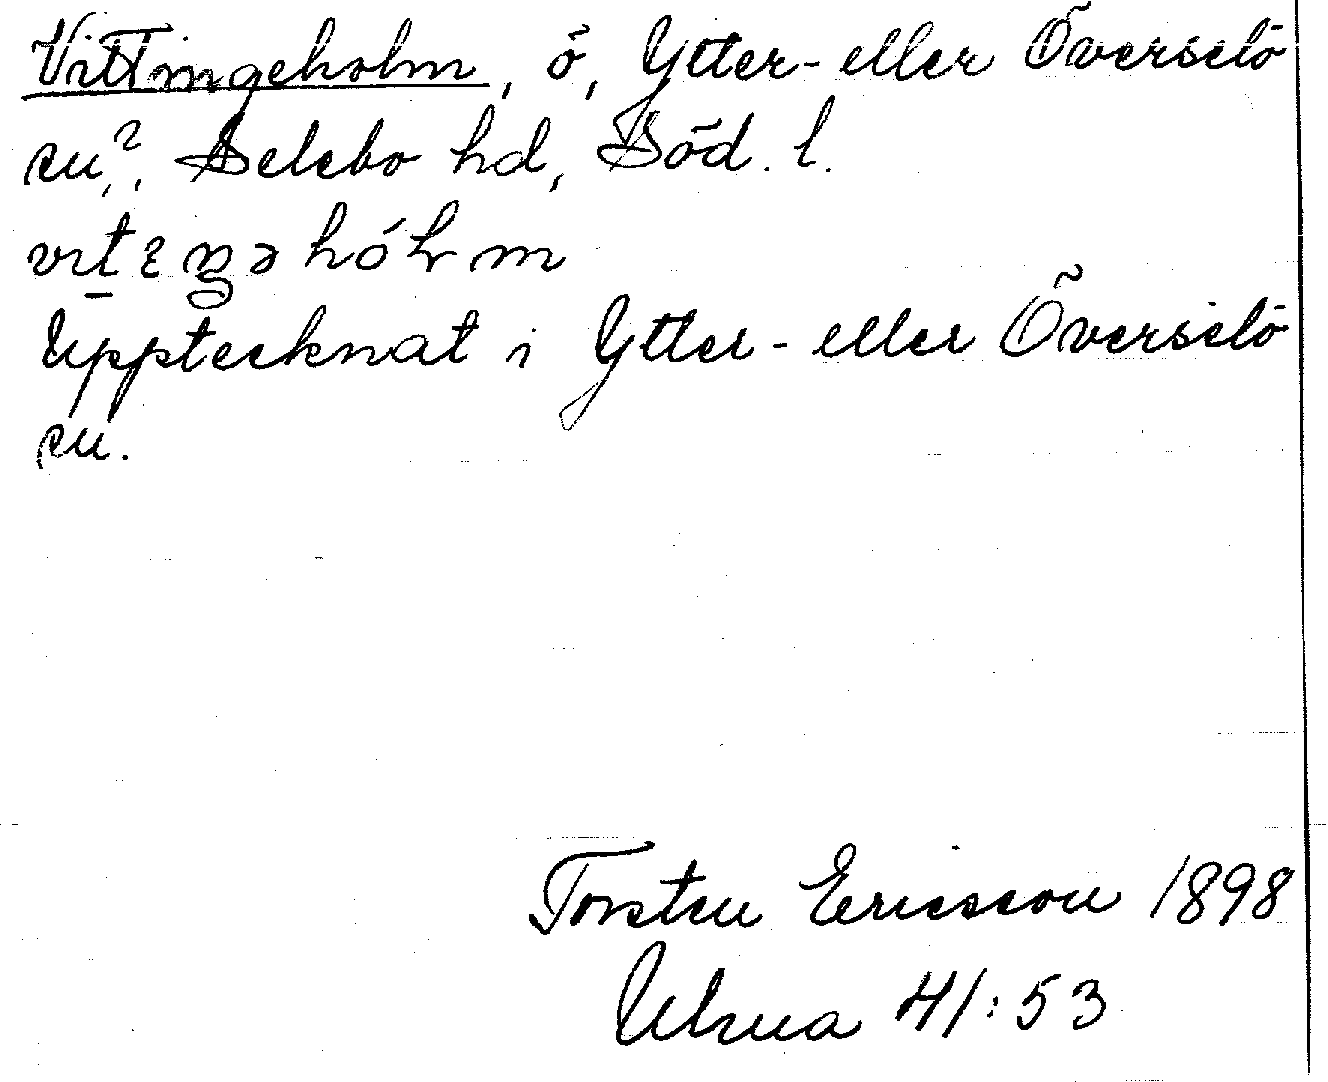 Vittingeholm, ö, Ytter- eller Överselö
sn?, Selebo hd, Söd. l.
Upptecknat i Ytter- eller Överselö
sn.
Torsten Ericsson 1898
Ulvua 41:53